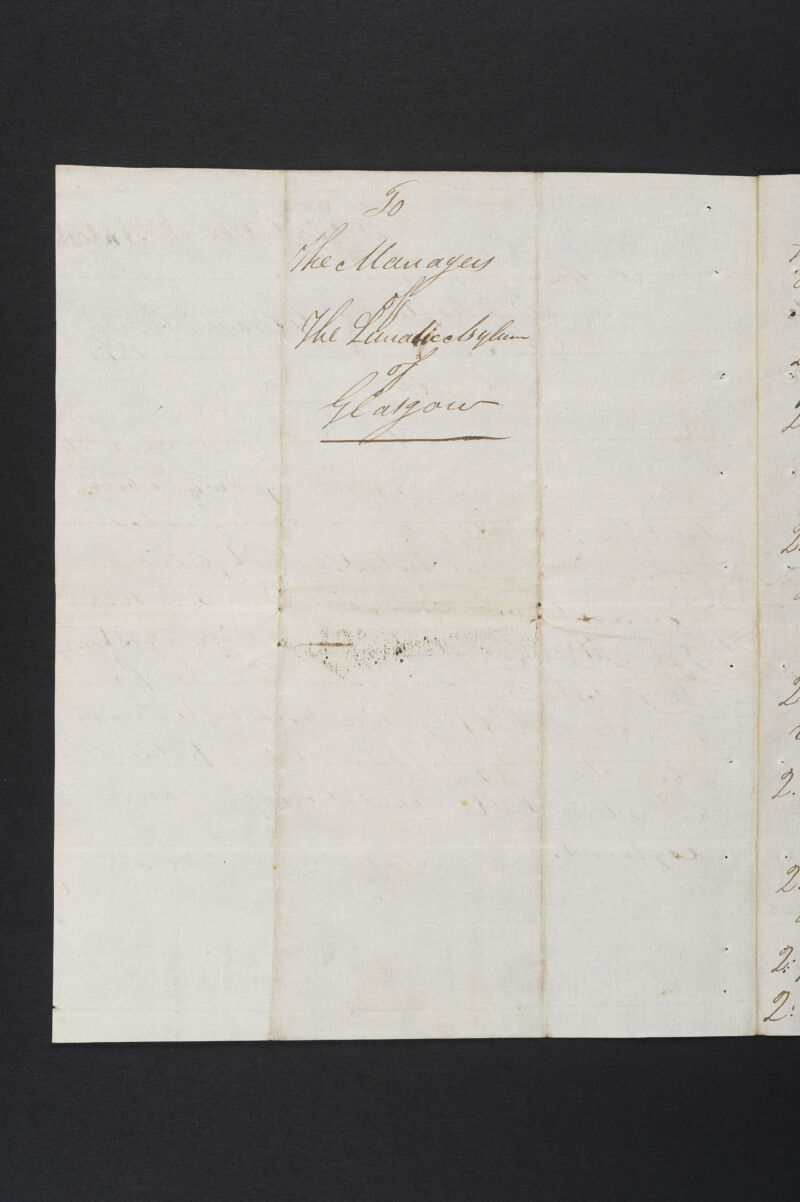 To
The Managers
of
The Lunatic Asylum
of
Glasgow
2
2
2.
2.
2:
2: